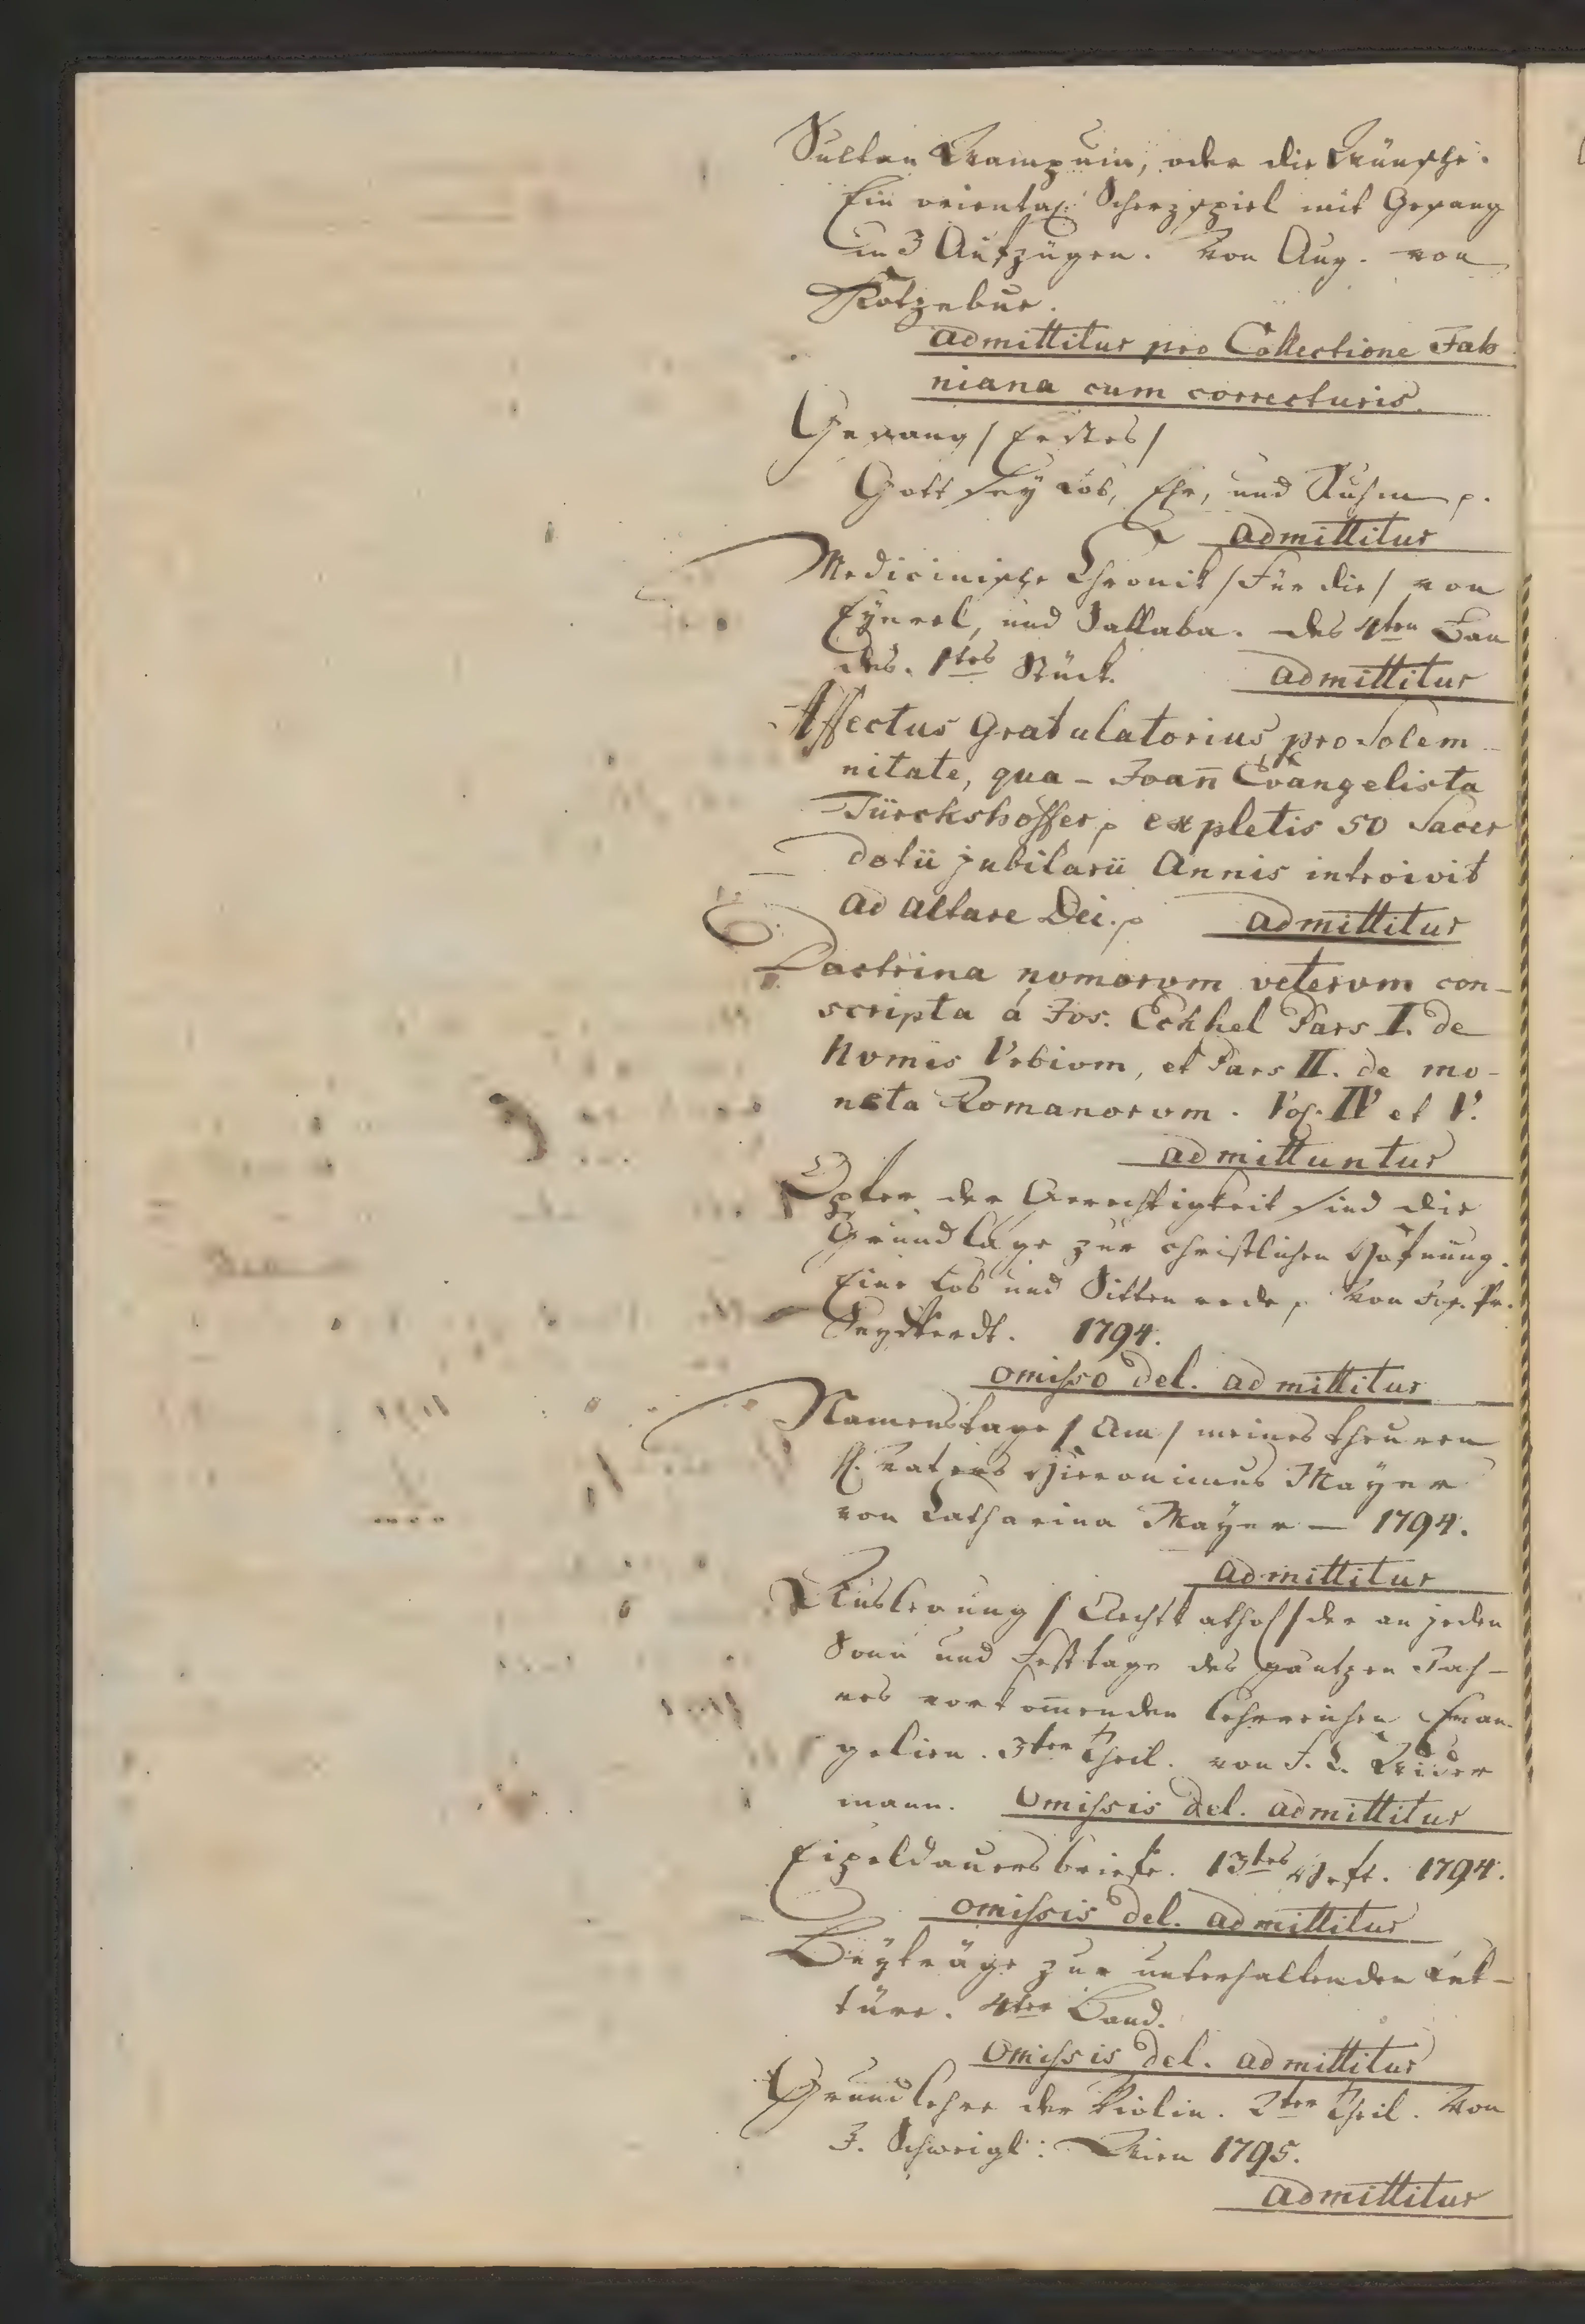 Sultan Wampum, oder die Wünsche.
Ein oriental: Scherzspiel mit Gesang
in 3 Aufzügen. Von Aug. von
Kotzebue.
admittitur pro Collectione Jah
niana cum correcturis.
Gesang / Erstes /
Gott sey Lob, Ehr, und Ruhm p.
admittitur
Medicinische Chronik / Für die / von
Eyerel, und Sallaba. des 4ten Ban
des. 1tes Stück. admittitur
Affectus Gratulatorius pro Solem-
nitate, qua - Joan̄ Evangelista
Türckshoffer p expletis 50 Sacer
dotii jubilarii Annis introivit
ad altare Dei. p admittitur
Doctrina nvmorvm vetervm con-
scripta á Jos. Eckhel Pars I. de
Nvmis Vrbivm, et Pars II. de mo-
neta Romanorvm. Vol. IV et V.
admittuntur
Opfer der Gerechtigkeit sind die
Grundlage zur christlichen Hofnung.
Eine Lob und Sittenrede p von Jos. Fr.
1794.
omisso del. admittitur
Namenstage / Am / meines theuren
H. Vaters Hieronimus Mayer
von Catharina Mayer — 1794.
admittitur
Auslegung / Aechtkathol / der an jeden
Sonn und Festtage des gantzen Jah-
res vorkom̄enden lehrreichen Evan-
gelien. 3ter Theil. von F. C. Wider
mann. omissis del. admittitur
Eipeldauersbriefe. 13tes Heft. 1794.
omissis del. admittitur
Beyträge zur unterhaltenden Lek-
türe. 4ter Band.
omissis del. admittitur
Grundlehre der Violin. 2ter Theil. Von
J. Schweigl: Wien 1795.
admittitur